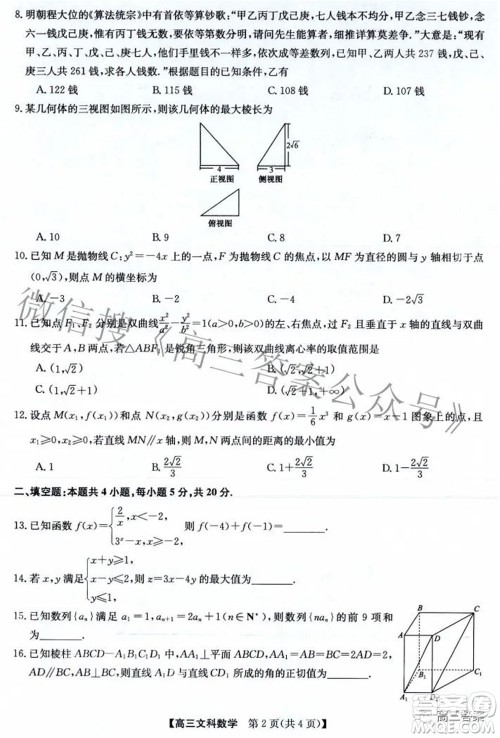 8. 明朝程大位的《算法统宗》中有首依等算钞歌:“甲乙丙丁戊己庚,七人钱本不均分,甲乙念三七钱钞,念
六一钱戊己庚,惟有丙丁钱无数,要依等第数分明,请问先生能算者,细推详算莫差争.”大意是:“现有
甲、乙、丙、丁、戊、己、庚共七人,他们手里钱不一样多,依次成等差数列,已知甲、乙两人共有 237 钱,戊、己、
庚三人共有 261 钱.”根据题目的已知条件,乙有
A. 122 钱 B. 115 钱 C. 108 钱 D. 107 钱
9. 某几何体的三视图如图所示,则该几何体的最大棱长为
2√6
4 3
正视图 侧视图
俯视图
A. 10 B. 9 C. 8 D. 7
10. 已知 M 是抛物线 C:y²=-4x 上的一点,F 为抛物线 C 的焦点,以 MF 为直径的圆与 y 轴相切于点
(0,√3),则点 M 的横坐标为
A. -3 B. -2 C. -4 D. -2√3
11. 已知点 F₁、F₂ 分别是双曲线 x²/a²-y²/b²=1(a>0,b>0)的左、右焦点,过 F₂ 且垂直于 x 轴的直线与双曲
线交于 A,B 两点,若△ABF₁ 是锐角三角形,则该双曲线离心率的取值范围是
A. (1,√2+1) B. (√2,√2+1)
C. (1,√2) D. (√2,2√2)
12. 设点 M(x₁,f(x₁))和点 N(x₂,g(x₂))分别是函数 f(x)=1/6 x³ 和 g(x)=x-1 图象上的点,且
x₁≥0,x₂≥0.若直线 MN∥x 轴,则 M,N 两点间的距离的最小值为
A. 1 B. 2√2/3 C. 1+2√2/3 D. 1-2√2/3
二、填空题:本题共 4 小题,每小题 5 分,共 20 分.
13. 已知函数 f(x)={2/x,x<-2, 3ˣ-x,x≥-2, 则 f(-4)+f(1)=________.
14. 若 x,y 满足{x-y≥0, x+y≤2, y≥0, 则 z=3x-4y 的最大值为________.
15. 已知数列{aₙ}满足 a₁=1,aₙ₊₁=2aₙ(n∈N*),则数列{naₙ}的前 9 项和
为________.
16. 已知棱柱 ABCD-A₁B₁C₁D₁ 中,AA₁⊥平面 ABCD,AA₁=AB=BC=CD=
2,AD∥BC,AD⊥DB,则直线 A₁D 与直线 CD₁ 所成的角的正切值为________.
B C
A D
B₁ C₁
A₁ D₁
【高三文科数学 第 2 页(共 4 页)】
微信搜《高三答案公众号》
高三答案